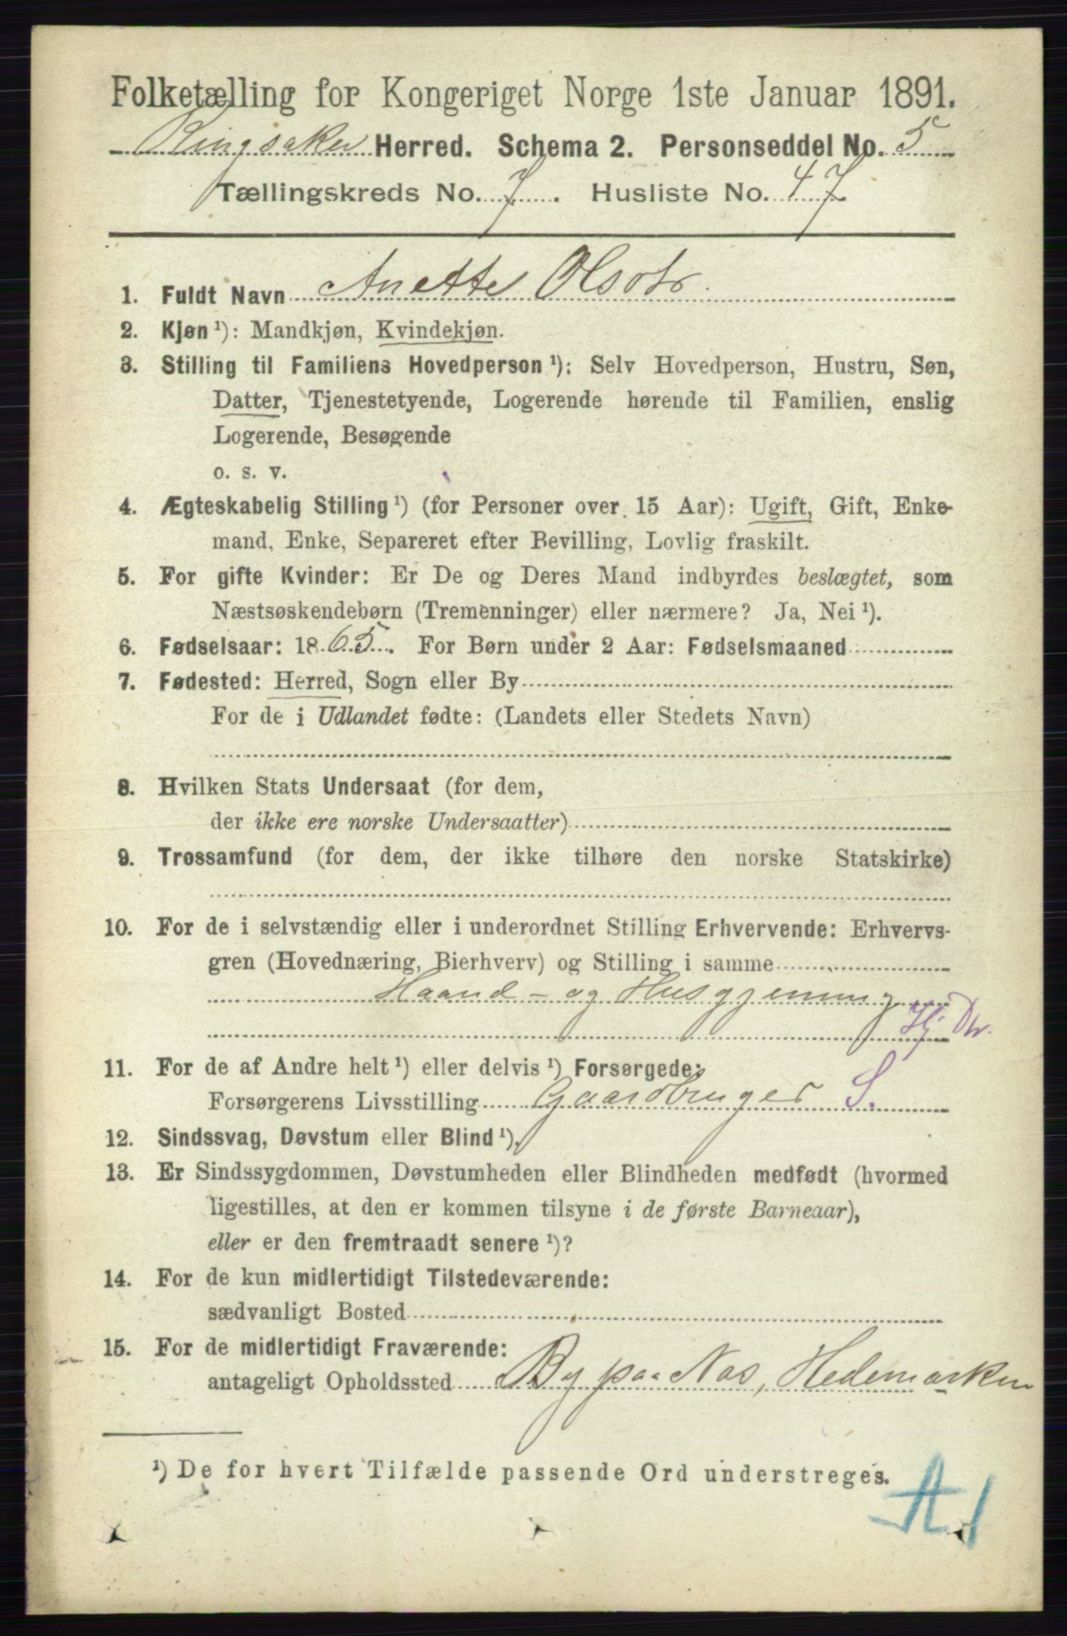 Folketælling for Kongeriget Norge 1ste Januar 1891.
Ringsaker Herred. Schema 2. Personseddel No. 5
Tællingskreds No. 7. Husliste No. 47
1. Fuldt Navn Anette Olsdtr.
2. Kjøn ¹): Mandkjøn, Kvindekjøn.
3. Stilling til Familiens Hovedperson ¹): Selv Hovedperson, Hustru, Søn,
Datter, Tjenestetyende, Logerende hørende til Familien, enslig
Logerende, Besøgende
o. s. v.
4. Ægteskabelig Stilling ¹) (for Personer over 15 Aar): Ugift, Gift, Enke-
mand, Enke, Separeret efter Bevilling, Lovlig fraskilt.
5. For gifte Kvinder: Er De og Deres Mand indbyrdes beslægtet, som
Næstsøskendebørn (Tremenninger) eller nærmere? Ja, Nei ¹).
6. Fødselsaar: 1865. For Børn under 2 Aar: Fødselsmaaned
7. Fødested: Herred, Sogn eller By
For de i Udlandet fødte: (Landets eller Stedets Navn)
8. Hvilken Stats Undersaat (for dem,
der ikke ere norske Undersaatter)
9. Trossamfund (for dem, der ikke tilhøre den norske Statskirke)
10. For de i selvstændig eller i underordnet Stilling Erhvervende: Erhvervs-
gren (Hovednæring, Bierhverv) og Stilling i samme
Haand- og Husgjerning
Hj. Dtr.
11. For de af Andre helt ¹) eller delvis ¹) Forsørgede:
Forsørgerens Livsstilling Gaardbruger S.
12. Sindssvag, Døvstum eller Blind ¹).
13. Er Sindssygdommen, Døvstumheden eller Blindheden medfødt (hvormed
ligestilles, at den er kommen tilsyne i de første Barneaar),
eller er den fremtraadt senere ¹)?
14. For de kun midlertidigt Tilstedeværende:
sædvanligt Bosted
15. For de midlertidigt Fraværende:
antageligt Opholdssted By paa Nes, Hedemarken
¹) De for hvert Tilfælde passende Ord understreges.
A1